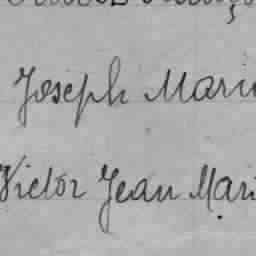 Joseph Mari
Victor Jean Mari